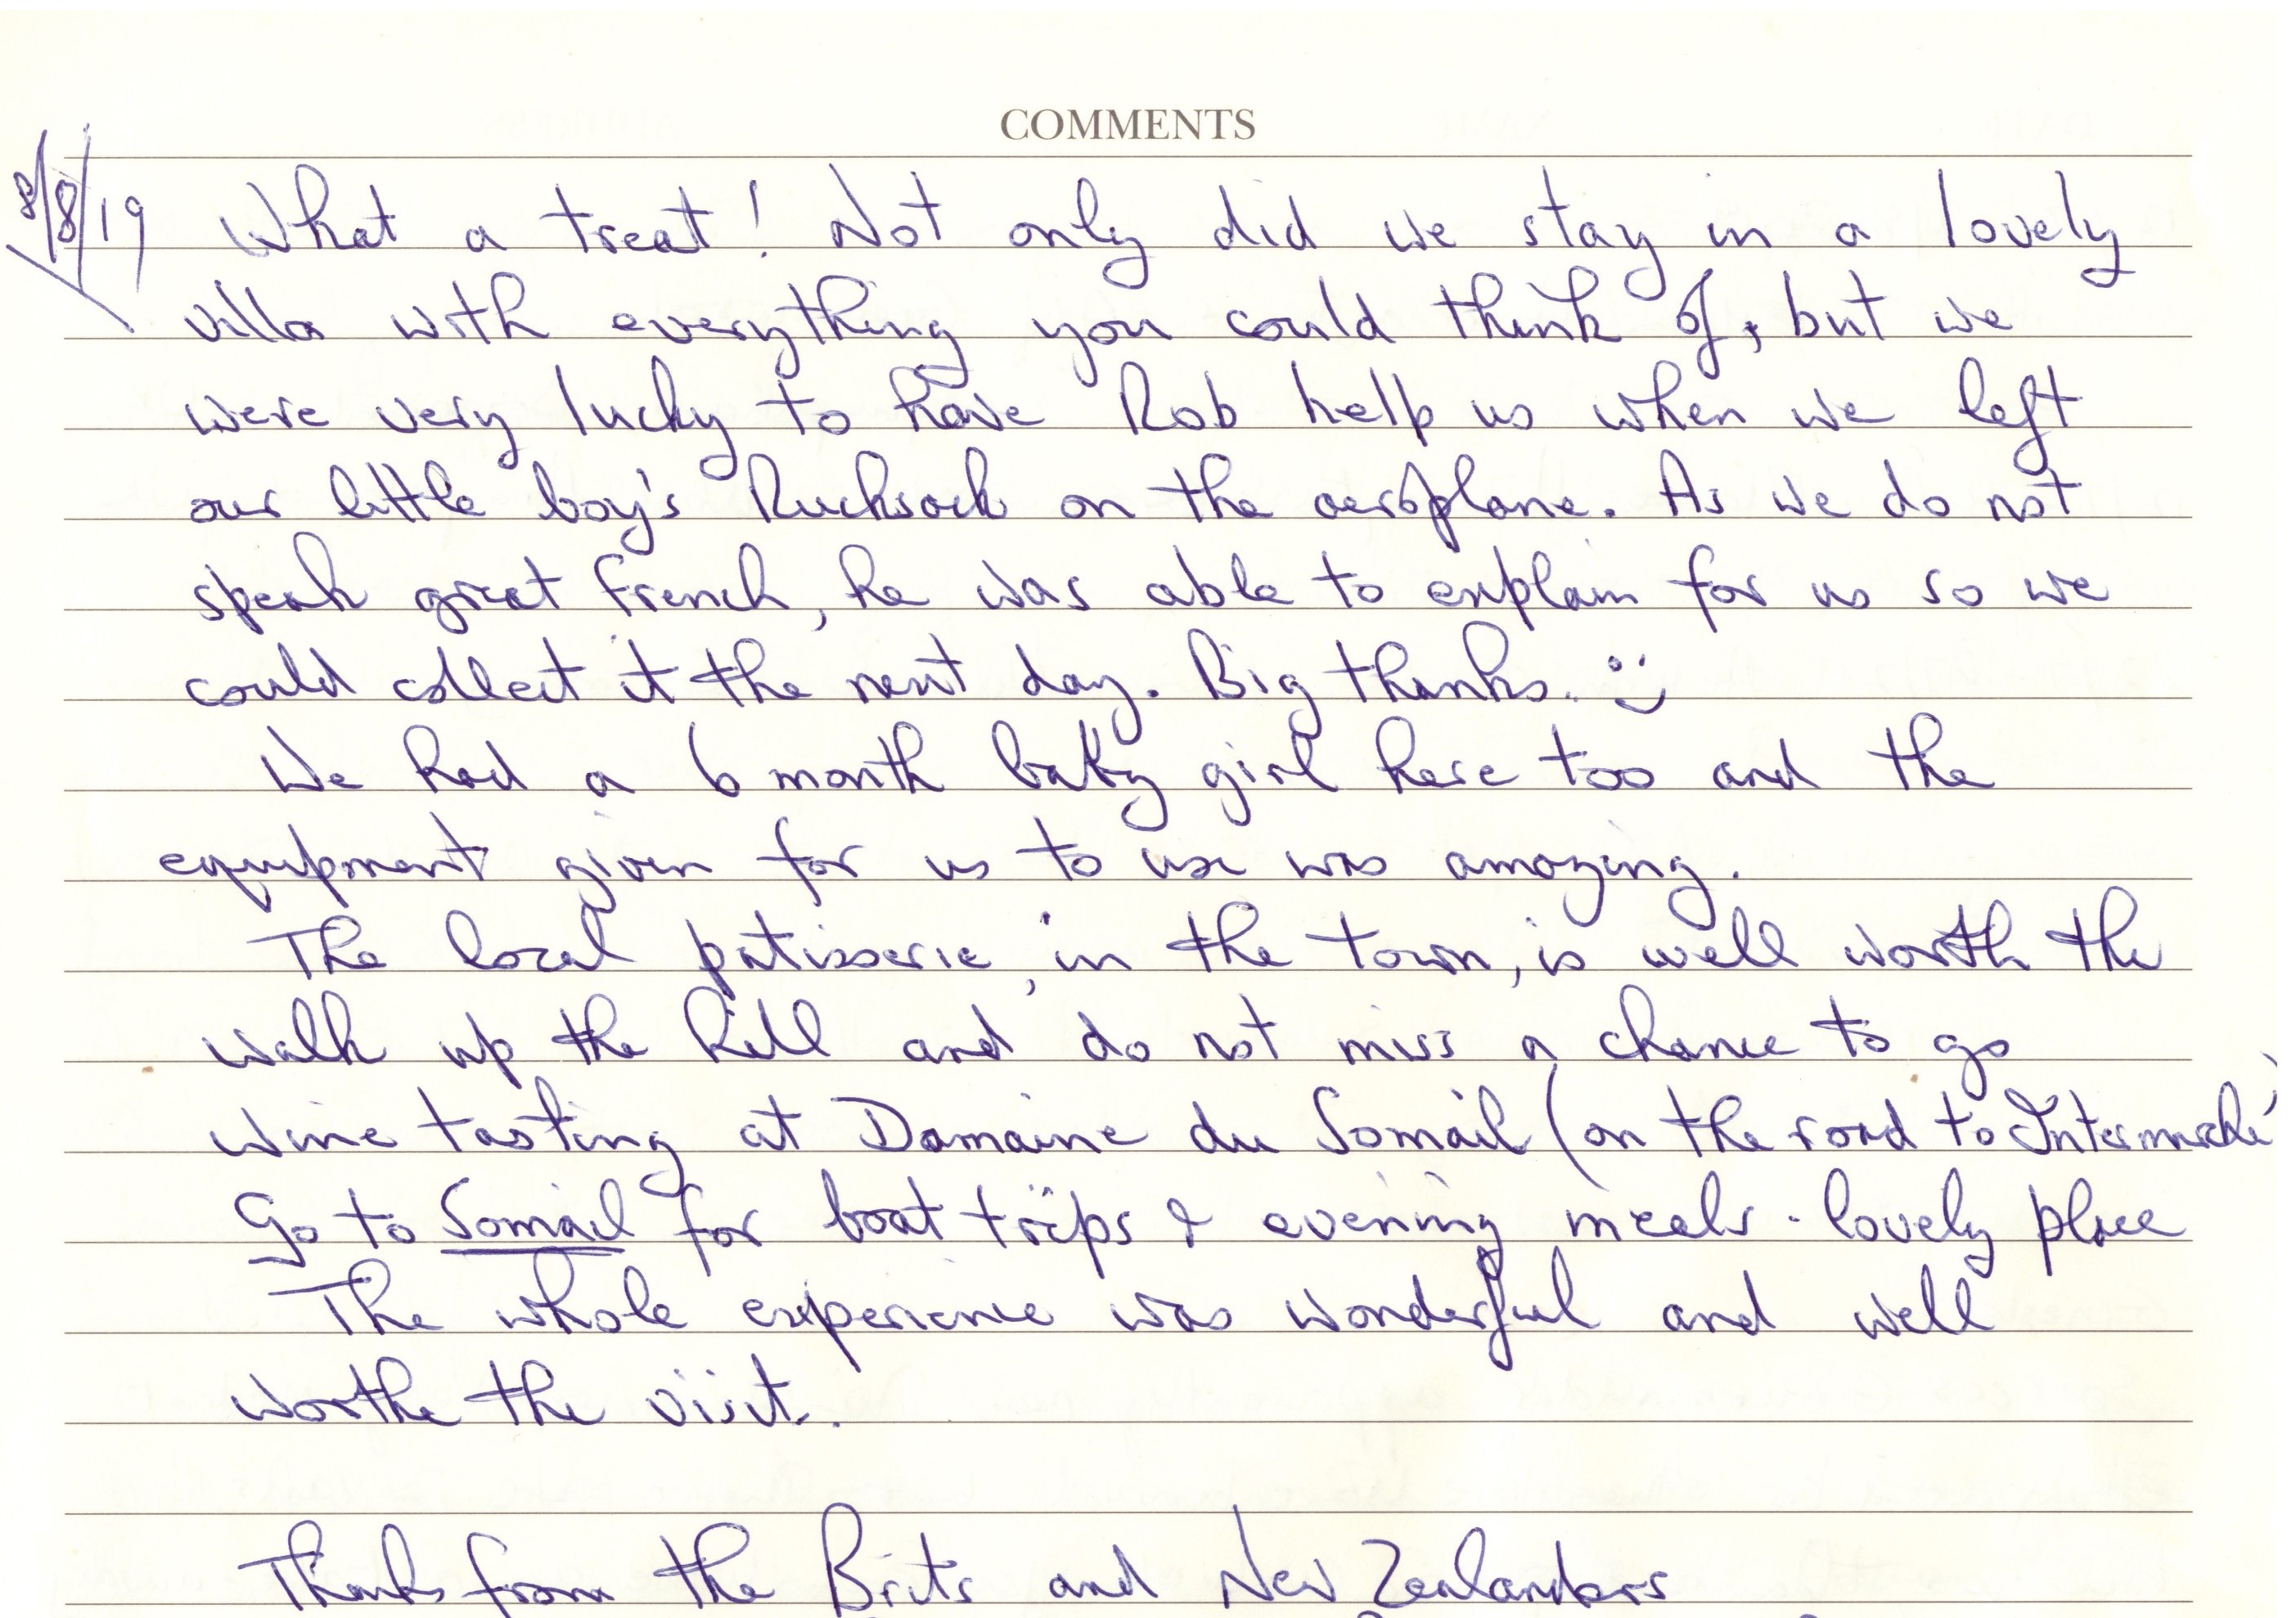 COMMENTS
8/8/19 What a treat! Not only did we stay in a lovely
villa with everything you could think of, but we
were very lucky to have Rob help us when we left
our little boy's Rucksack on the aeroplane. As we do not
speak great french, he was able to explain for us so we
could collect it the next day. Big thanks. :)
We had a 6 month baby girl here too and the
equipment given for us to use was amazing.
The local patisserie, in the town, is well worth the
walk up the hill and do not miss a chance to go
wine tasting at Domaine du Somail (on the road to Intermarché)
Go to Somail for boat trips & evening meals - lovely place
The whole experience was wonderful and well
worthe the visit.
Thanks from the Brits and New Zealanders